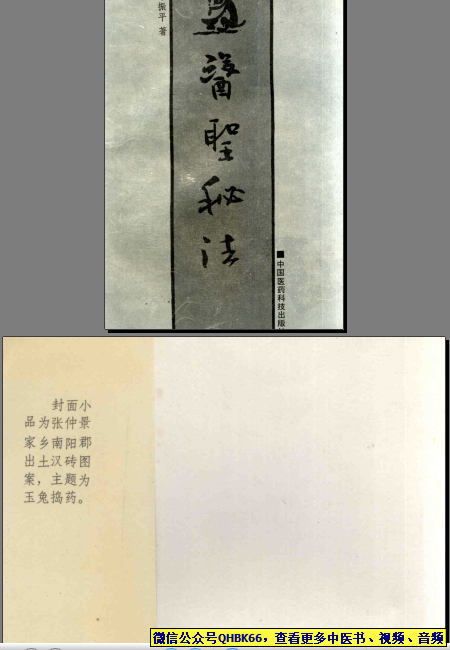 振平 著
醫聖秘法
■中国医药科技出版
封面小
品为张仲景
家乡南阳郡
出土汉砖图
案，主题为
玉兔捣药。
微信公众号QHBK66，查看更多中医书、视频、音频